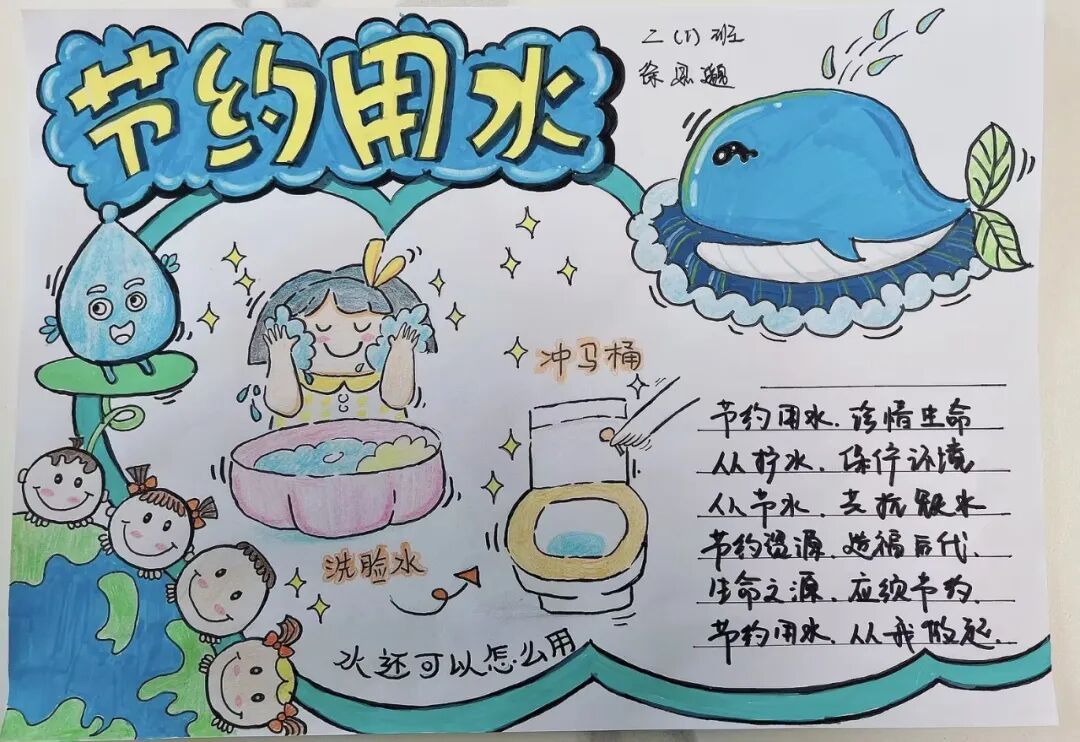 节约用水
二(1)班
冲马桶
洗脸水
水还可以怎么用
节约用水.珍惜生命
从拧水.保护环境
从节水.去抗缺水
节约资源.造福后代.
生命之源.应须节约.
节约用水.从我做起.